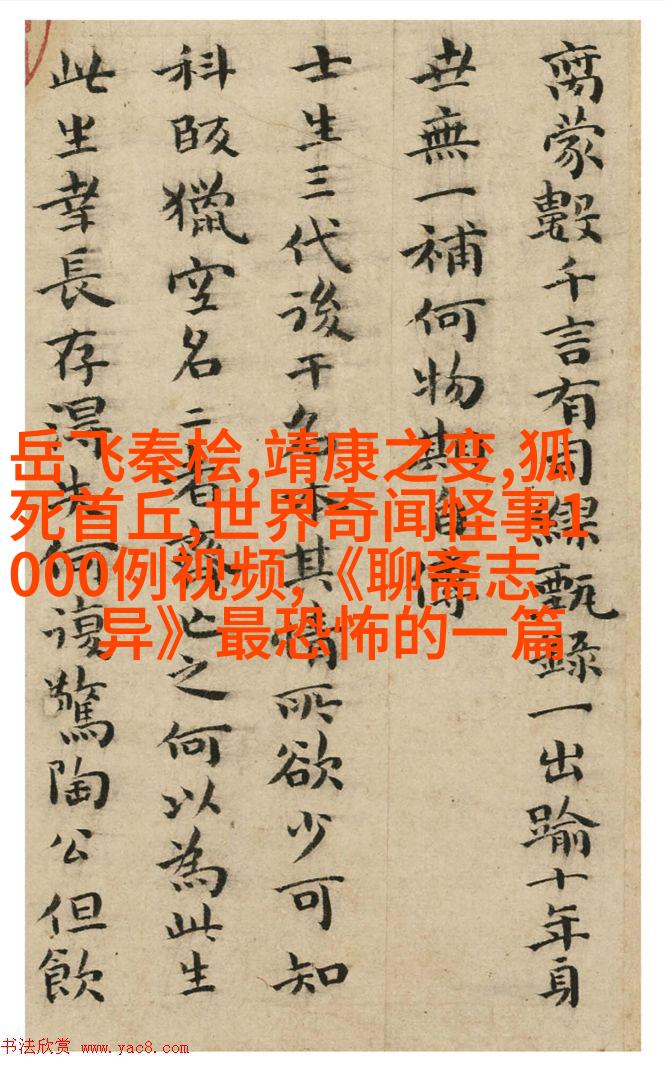 离蒙數千言有司繆甄錄一出踰十年身
世無一補何物
士生三代後干名
其情所欲少可知
科臤獵空名二者
亡之何以為此生
此生幸長存得失何復驚陶公但飲
岳飞秦桧,靖康之变,狐
死首丘,世界奇闻怪事1
000例视频,《聊斋志
异》最恐怖的一篇
书法欣赏 www.yac8.com